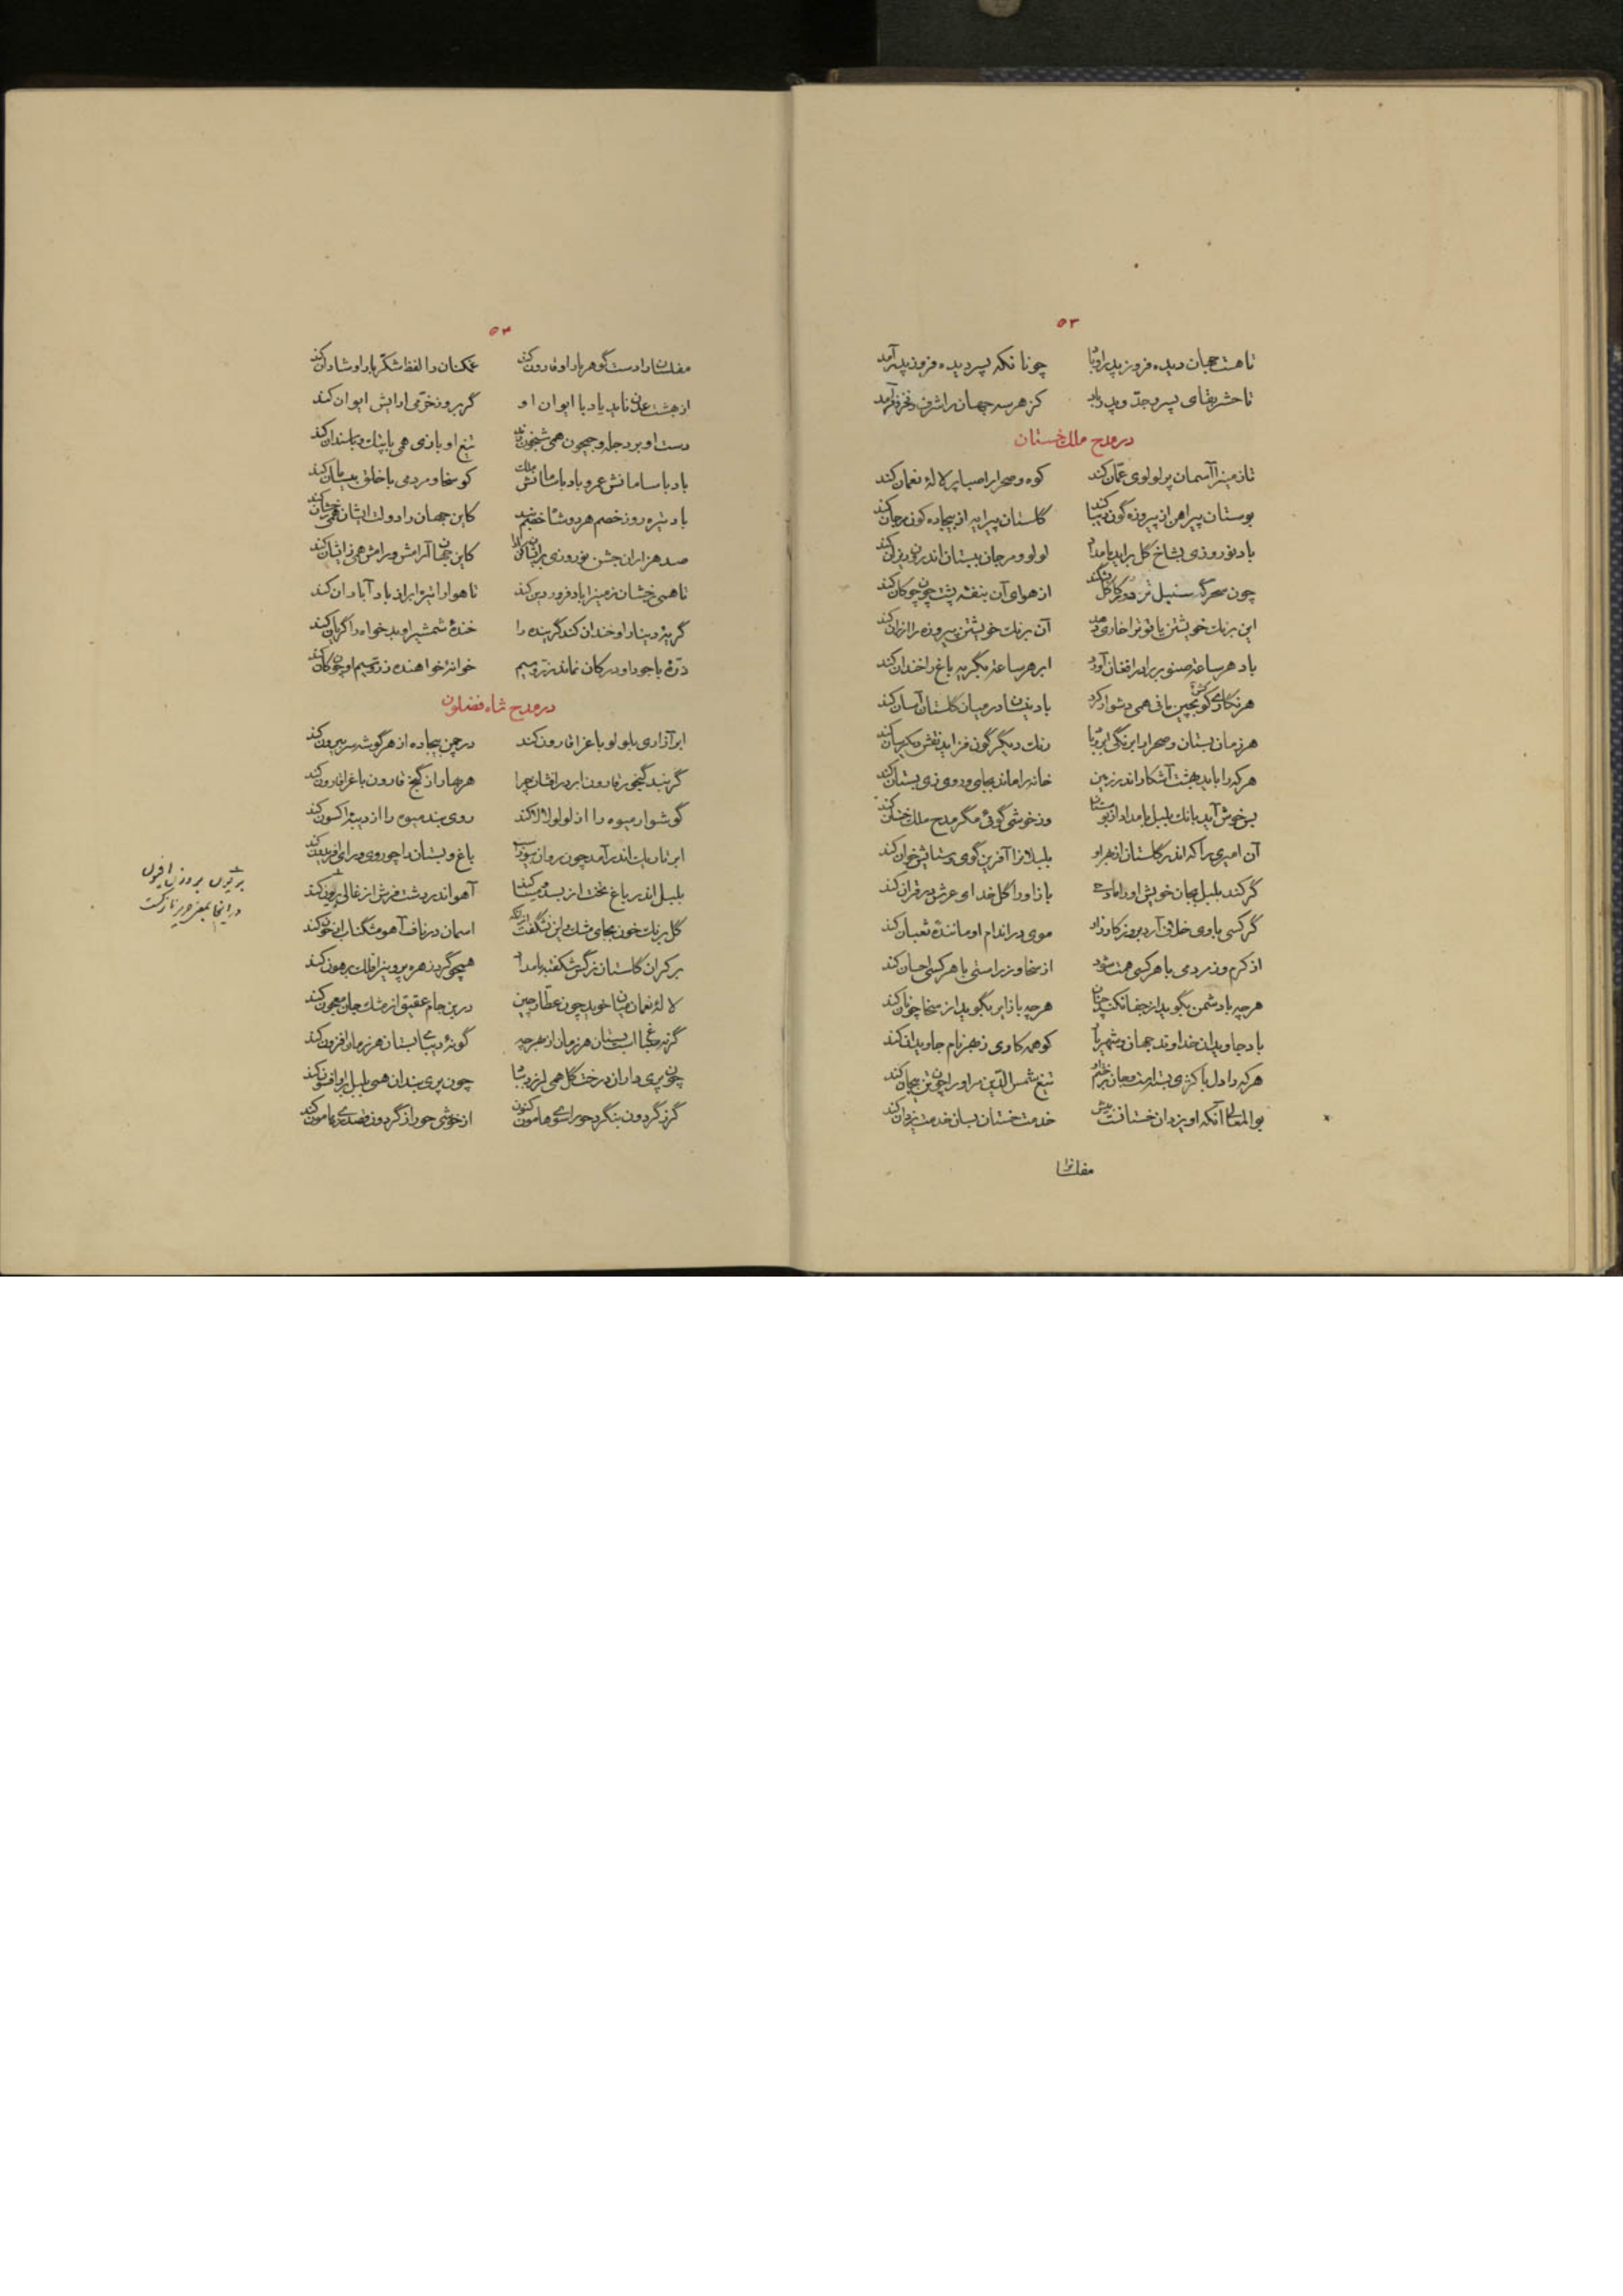 ۵۳
تا هست جهان دیده فروز پدر او باد چونانکه پسر دیده فروز پدر آمد
تا حشر بقای پسر و جد و پدر باد کز هر سه جهان را شرف و فخر و فر آمد
در مدح ملک خستان
تا زمین را آسمان پر لولوی عمان کند کوه و صحرا را صبا پر لالهٔ نعمان کند
بوستان پیراهن از پیروزه گون دیبا کند گلستان پیرایه از بیجاده گون مرجان کند
باد نوروزی بشاخ گل برآید بامداد لولو و مرجان ببستان اندرون ریزان کند
چون سحرگه سنبل تر کند از هوای آن بنفشه پشت چون چوگان کند
این برنگ خویشتن یاقوت را خاری دهد آن برنگ خویشتن پیروزه را ارزان کند
باد هر ساعت صنوبر را در افغان آورد ابر هر ساعت بگرید باغ را خندان کند
هر نگاری کو بچین مانی همی دشوار کرد باد نیسان در میان گلستان آسان کند
هر زمان بستان و صحرا را برنگی ابر و باد رنگ دیگرگون فزاید نقش دیگرسان کند
هر که را باید بهشت آشکارا اندر زمین خانه را ماند بجای و روی زی بستان کند
بس خوش آید بانگ بلبل بامداد از بوستان وز خوشی گوئی مگر مدح ملک خستان کند
آن امیری را که اندر گلستان از بهر او بلبلان را آفرین گوی و ستایش خوان کند
گر کند بلبل بجان خویش او را باز او را گل خدای عرش در قرآن کند
گر کسی یاوی خلاف آرد بروز کارزار موی در اندام او مانندهٔ ثعبان کند
از کرم وز مردمی با هر کسی همت شود از سخا وز راستی با هر کسی احسان کند
هرچه با دشمن بگوید از جفا نکند چنان هرچه با زایر بگوید از سخا چونان کند
باد جاویدان خداوند جهان و شهریار کو همه کاری ز بهر نام جاویدان کند
هر که را دل با کژی تیغ شمس الدین مر او را چون تن بیجان کند
بوالمعالی آنکه او یزدان خستانست خدمت خستان بسان خدمت یزدان کند
مفلسانرا
۵۴
مفلسان را دست گوهر بار او قارون کند غمکنان را لفظ شکر بار او شادان کند
از بهشت عدن ناید باد با ایوان او گر بروز خرمی آرایش ایوان کند
دست او بر دجله و جیحون همی شبخون تیغ او بازی همی با پتک و با سندان کند
باد با سامانش عمر و باد با مانش ملک کو سخا و مردمی با خلق بیسامان کند
باد تیره روز خصم هر دو شاد کاین جهان را دولت ایشان همی رخشان کند
صد هزاران جشن نوروزی برایشان کاین جهان آرامش و رامش همی زایشان کند
تا همی رخشان زمین را باد فروردین کند تا هوا را تیره ابر از باد آبادان کند
گریهٔ دینار او خندان کند گرینده را خندهٔ شمشیر او بدخواه را گریان کند
ذرهٔ با جود او در کان نماند زر و سیم خوانهٔ خواهنده ز زر و سیم او چون کان کند
در مدح شاه فضلون
ابر آزاری بلولو باغ را قارون کند در چمن بیجاده از هر گوشه سر بیرون کند
گر نبد گنجور قارون ابر در افشان چرا هر بهار از گنج قارون باغ را قارون کند
گوشوار میوه را از لولو لالا کند روی بند میوه را از دیبه اکسون کند
ابر تاریک اندر آمد چون روان بیوراسب باغ و بستان را چو روی و رای افریدون کند
بلبل اندر باغ تخت از بسد و مینا کند آهو اندر دشت فرش از غالی بزیون کند
گل برنگ خون بجای مشک این شگفت از آنکه آسمان در ناف آهو مشگ ناب از خون کند
بر کران گلستان نرگس شکفته بامداد همچو گرد زهره پروین را فلک پرهون کند
لاله نعمان میان خوید چون عطار چین در بن جام عقیق از مشک جان معجون کند
گریه میغ از بستان هر زمان از هرچه گونهٔ دیبای بستان هر زمان افزون کند
چون پری داران درخت گل همی لرزد بباد چون پری بندان همی بلبل بر او افسون کند
گر ز گردون بنگرد حورا سوی هامون کنون از خوشی حورا ز گردون قصد زی هامون کند
بزیون بر وزن افیون
در اینجا بمعنی حریر نازکست